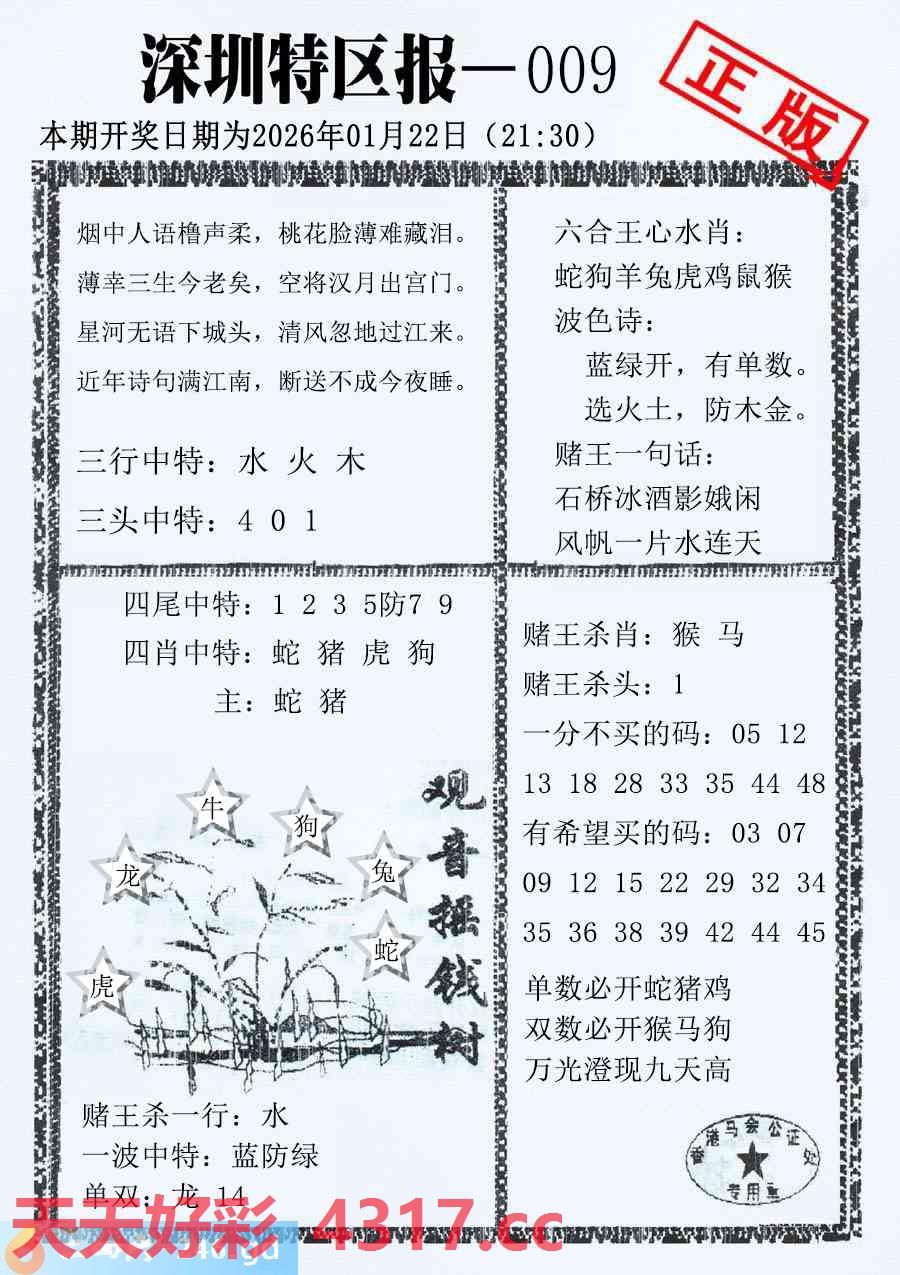 深圳特区报—009
正版
本期开奖日期为2026年01月22日（21:30）
烟中人语橹声柔，桃花脸薄难藏泪。
薄幸三生今老矣，空将汉月出宫门。
星河无语下城头，清风忽地过江来。
近年诗句满江南，断送不成今夜睡。
三行中特：水 火 木
三头中特：4 0 1
六合王心水肖：
蛇狗羊兔虎鸡鼠猴
波色诗：
蓝绿开，有单数。
选火土，防木金。
赌王一句话：
石桥冰酒影娥闲
风帆一片水连天
四尾中特：1 2 3 5防7 9
四肖中特：蛇 猪 虎 狗
主：蛇 猪
牛
狗
龙
兔
蛇
虎
观音摇钱树
赌王杀一行：水
一波中特：蓝防绿
单双：龙 14
赌王杀肖：猴 马
赌王杀头：1
一分不买的码：05 12
13 18 28 33 35 44 48
有希望买的码：03 07
09 12 15 22 29 32 34
35 36 38 39 42 44 45
单数必开蛇猪鸡
双数必开猴马狗
万光澄现九天高
香港马会公证处
专用章
天天好彩 4317.cc